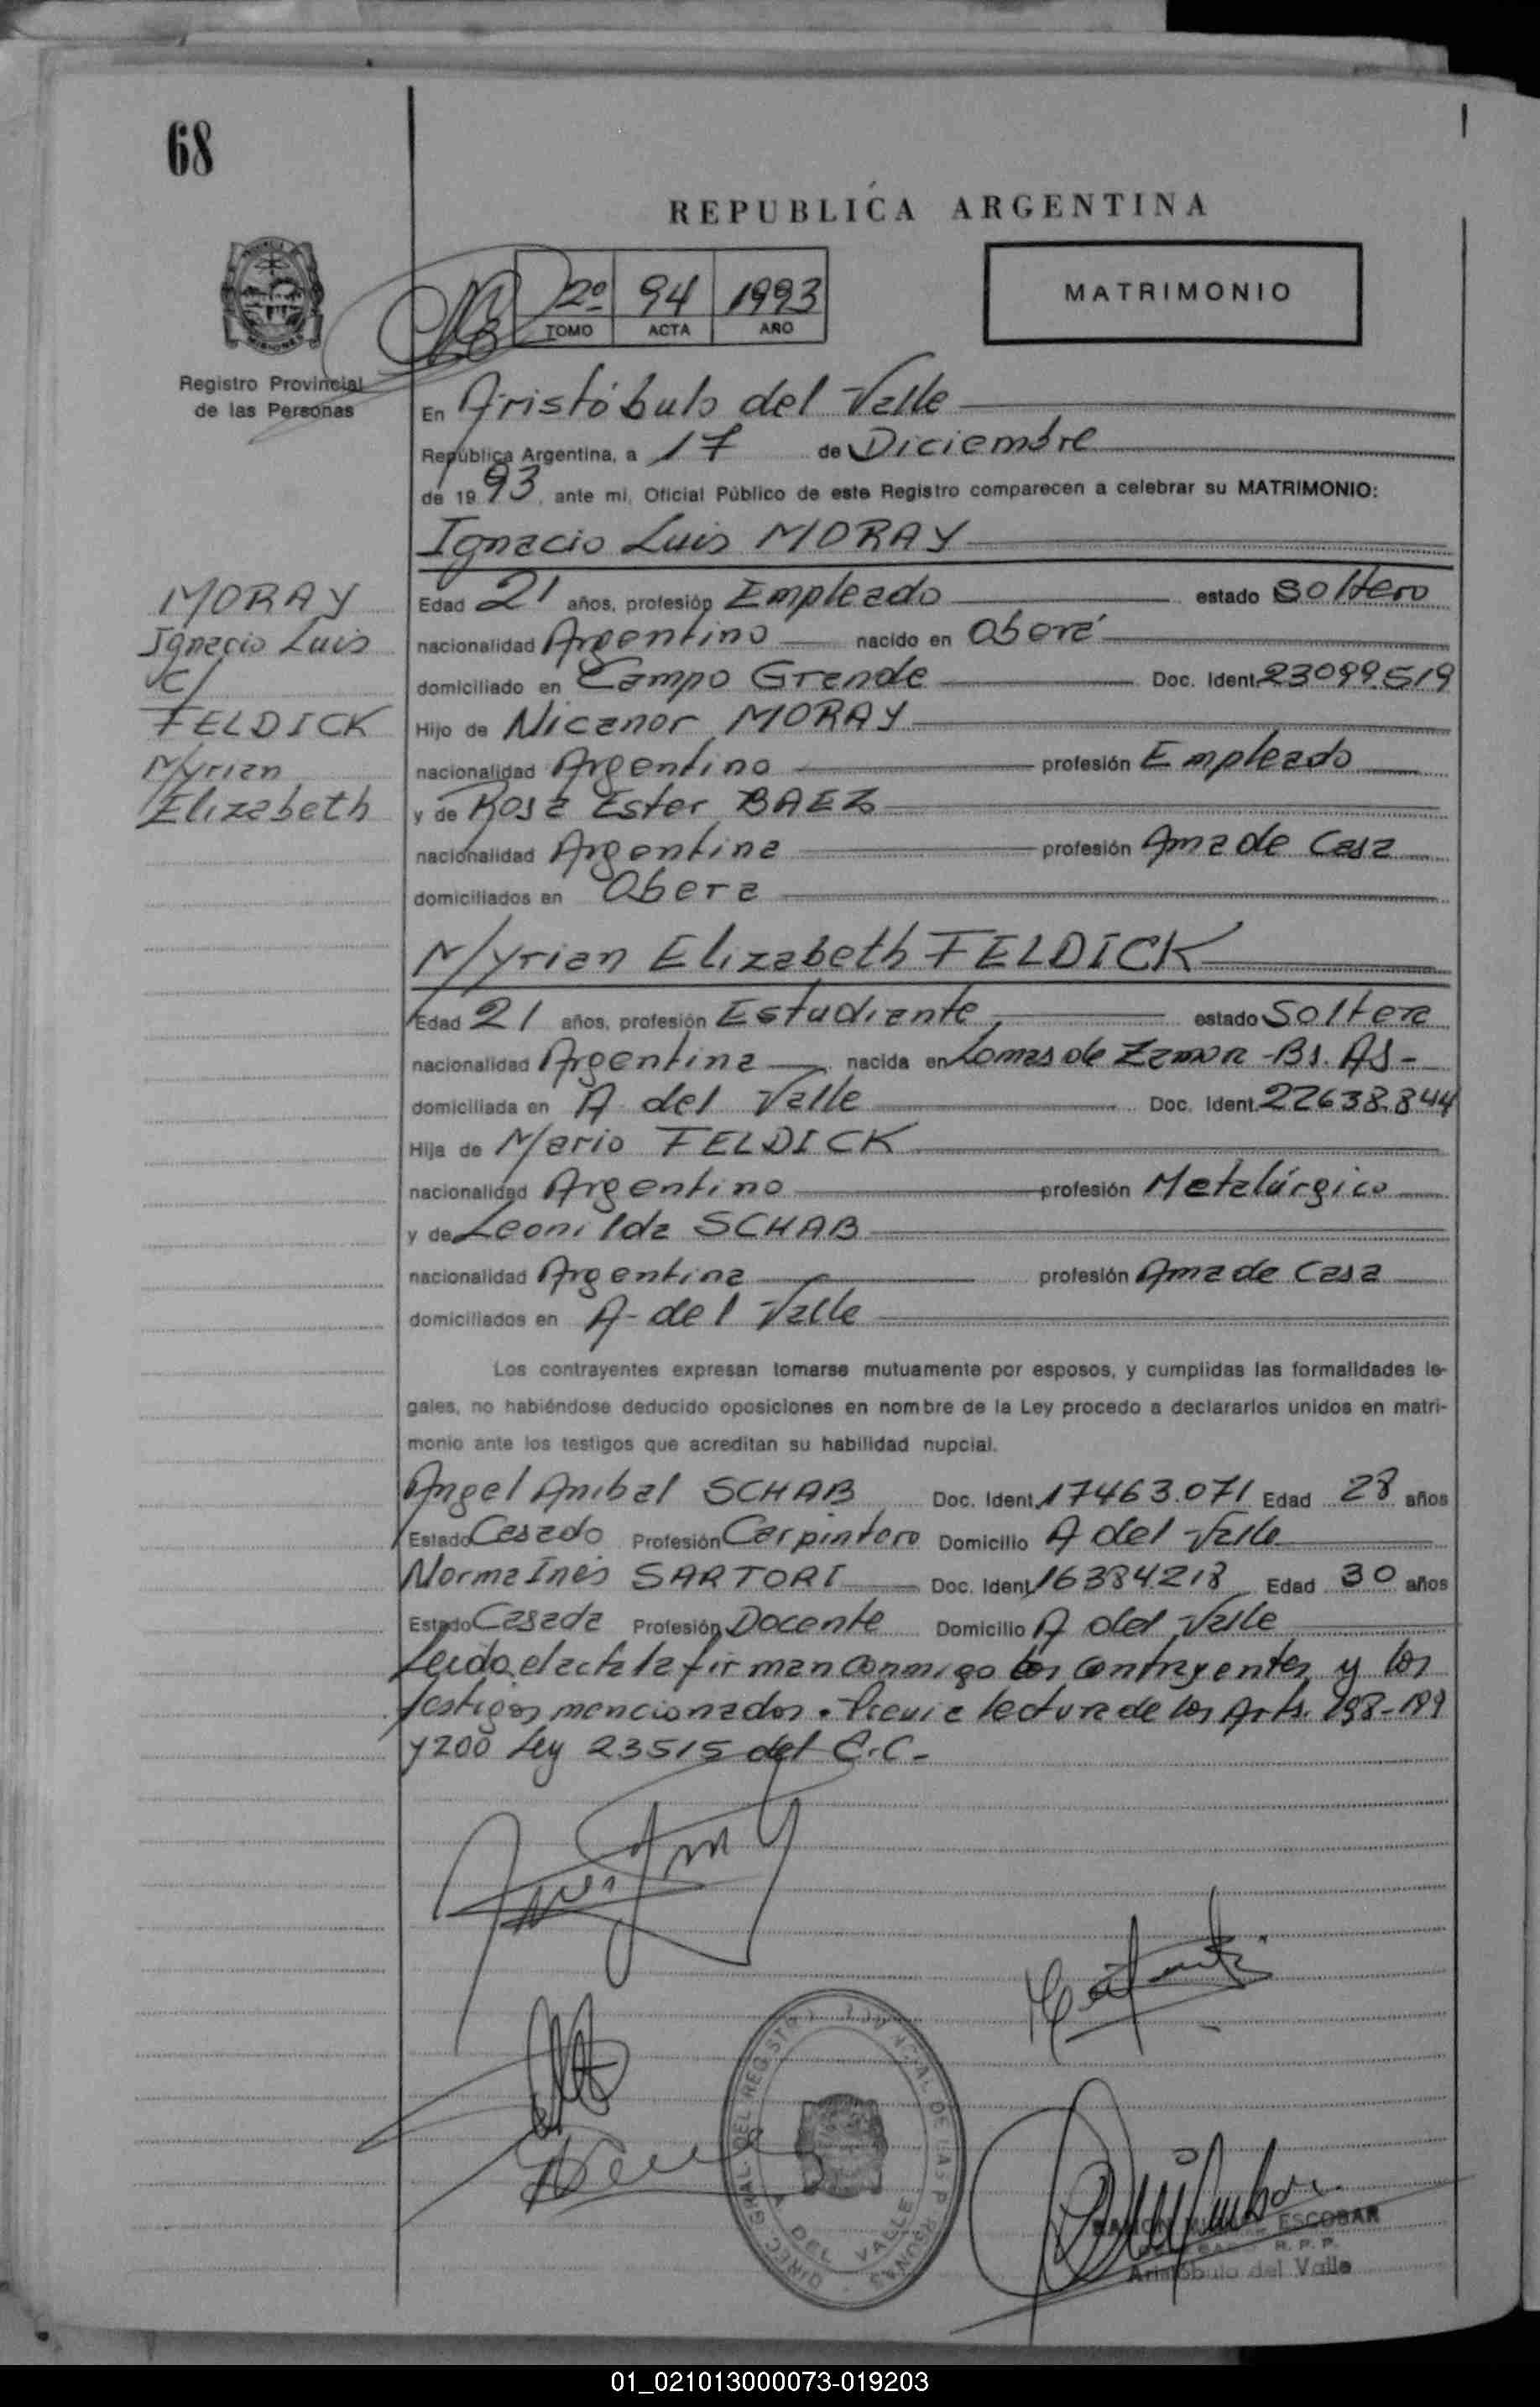 68
REPUBLICA ARGENTINA
MISIONES
Registro Provincial
de las Personas
2º 94 1993
TOMO ACTA AÑO
MATRIMONIO
En Aristóbulo del Valle
República Argentina, a 17 de Diciembre
de 1993, ante mi, Oficial Público de este Registro comparecen a celebrar su MATRIMONIO:
Ignacio Luis MORAY
MORAY
Ignacio Luis
C/
FELDICK
Myrian
Elizabeth
Edad 21 años, profesión Empleado estado Soltero
nacionalidad Argentino nacido en Oberá
domiciliado en Campo Grande Doc. Ident. 23099519
Hijo de Nicanor MORAY
nacionalidad Argentino profesión Empleado
y de Rosa Ester BAEZ
nacionalidad Argentina profesión Ama de Casa
domiciliados en Obera
Myrian Elizabeth FELDICK
Edad 21 años, profesión Estudiante estado Soltera
nacionalidad Argentina nacida en Lomas de Zamora - Bs. As -
domiciliada en A del Valle Doc. Ident. 22638.844
Hija de Mario FELDICK
nacionalidad Argentino profesión Metalúrgico
y de Leonilda SCHAB
nacionalidad Argentina profesión Ama de Casa
domiciliados en A- del Valle
Los contrayentes expresan tomarse mutuamente por esposos, y cumplidas las formalidades le-
gales, no habiéndose deducido oposiciones en nombre de la Ley procedo a declararlos unidos en matri-
monio ante los testigos que acreditan su habilidad nupcial.
Angel Anibal SCHAB Doc. Ident. 17463.071 Edad 28 años
Estado Casado Profesión Carpintero Domicilio A del Valle
Norma Inés SARTORI Doc. Ident. 16384218 Edad 30 años
Estado Casada Profesión Docente Domicilio A del Valle
Leida el acta la firman conmigo los contrayentes y los
testigos mencionados. Previa lectura de los Arts. 198-199
y 200 Ley 23515 del C.C.-
DIREC. GRAL. DEL REGISTRO PROVINCIAL DE LAS PERSONAS
A DEL VALLE
RAMON ESCOBAR
R. P. P.
Aristóbulo del Valle
01_021013000073-019203